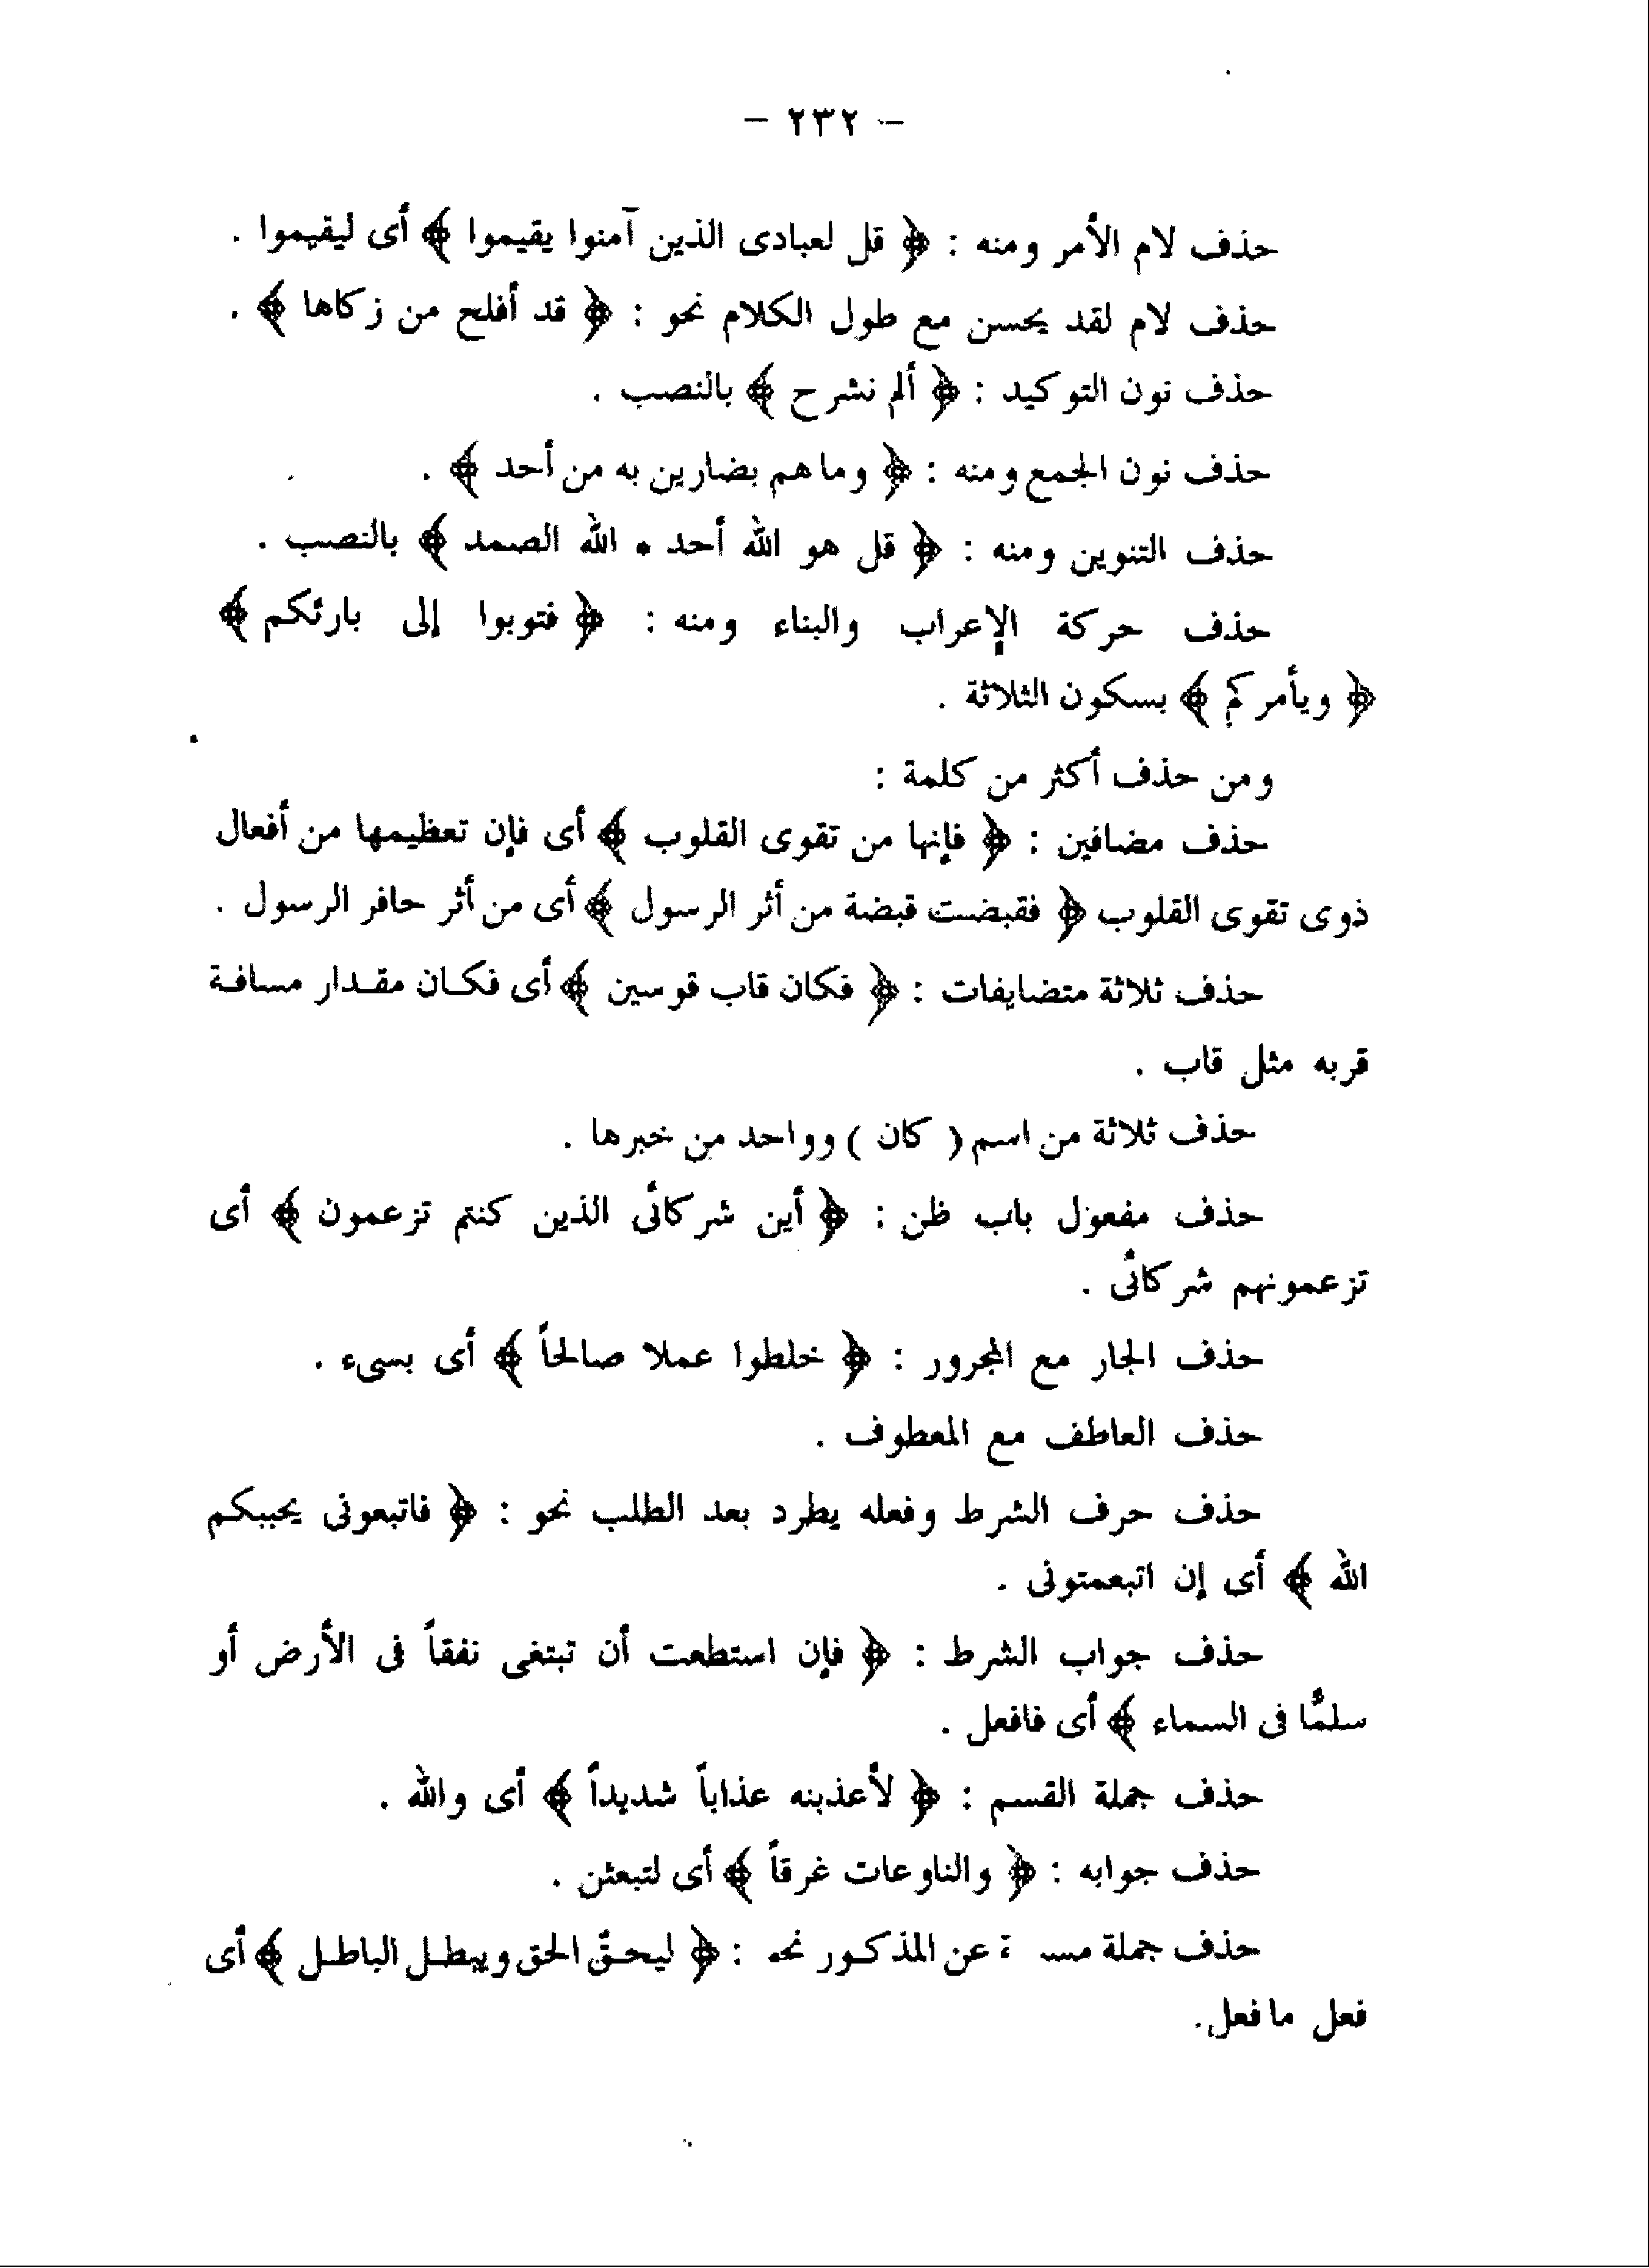 – ٢٣٢ –
حذف لام الأمر ومنه : ﴿ قل لعبادى الذين آمنوا يقيموا ﴾ أى ليقيموا .
حذف لام لقد يحسن مع طول الكلام نحو : ﴿ قد أفلح من زكاها ﴾ .
حذف نون التوكيد : ﴿ ألم نشرح ﴾ بالنصب .
حذف نون الجمع ومنه : ﴿ وما هم بضارين به من أحد ﴾ .
حذف التنوين ومنه : ﴿ قل هو الله أحد * الله الصمد ﴾ بالنصب .
حذف حركة الإعراب والبناء ومنه : ﴿ فتوبوا إلى بارئكم ﴾
﴿ ويأمركم ﴾ بسكون الثلاثة .
ومن حذف أكثر من كلمة :
حذف مضافين : ﴿ فإنها من تقوى القلوب ﴾ أى فإن تعظيمها من أفعال
ذوى تقوى القلوب ﴿ فقبضت قبضة من أثر الرسول ﴾ أى من أثر حافر الرسول .
حذف ثلاثة متضايفات : ﴿ فكان قاب قوسين ﴾ أى فكان مقدار مسافة
قربه مثل قاب .
حذف ثلاثة من اسم ( كان ) وواحد من خبرها .
حذف مفعول باب ظن : ﴿ أين شركائى الذين كنتم تزعمون ﴾ أى
تزعمونهم شركائى .
حذف الجار مع المجرور : ﴿ خلطوا عملا صالحاً ﴾ أى بسىء .
حذف العاطف مع المعطوف .
حذف حرف الشرط وفعله يطرد بعد الطلب نحو : ﴿ فاتبعونى يحببكم
الله ﴾ أى إن اتبعمتونى .
حذف جواب الشرط : ﴿ فإن استطعت أن تبتغى نفقاً فى الأرض أو
سلمًّا فى السماء ﴾ أى فافعل .
حذف جملة القسم : ﴿ لأعذبنه عذاباً شديداً ﴾ أى والله .
حذف جوابه : ﴿ والناوعات غرقاً ﴾ أى لتبعثن .
حذف جملة عن المذكور : ﴿ ليحقّ الحق ويبطل الباطل ﴾ أى
فعل ما فعل.